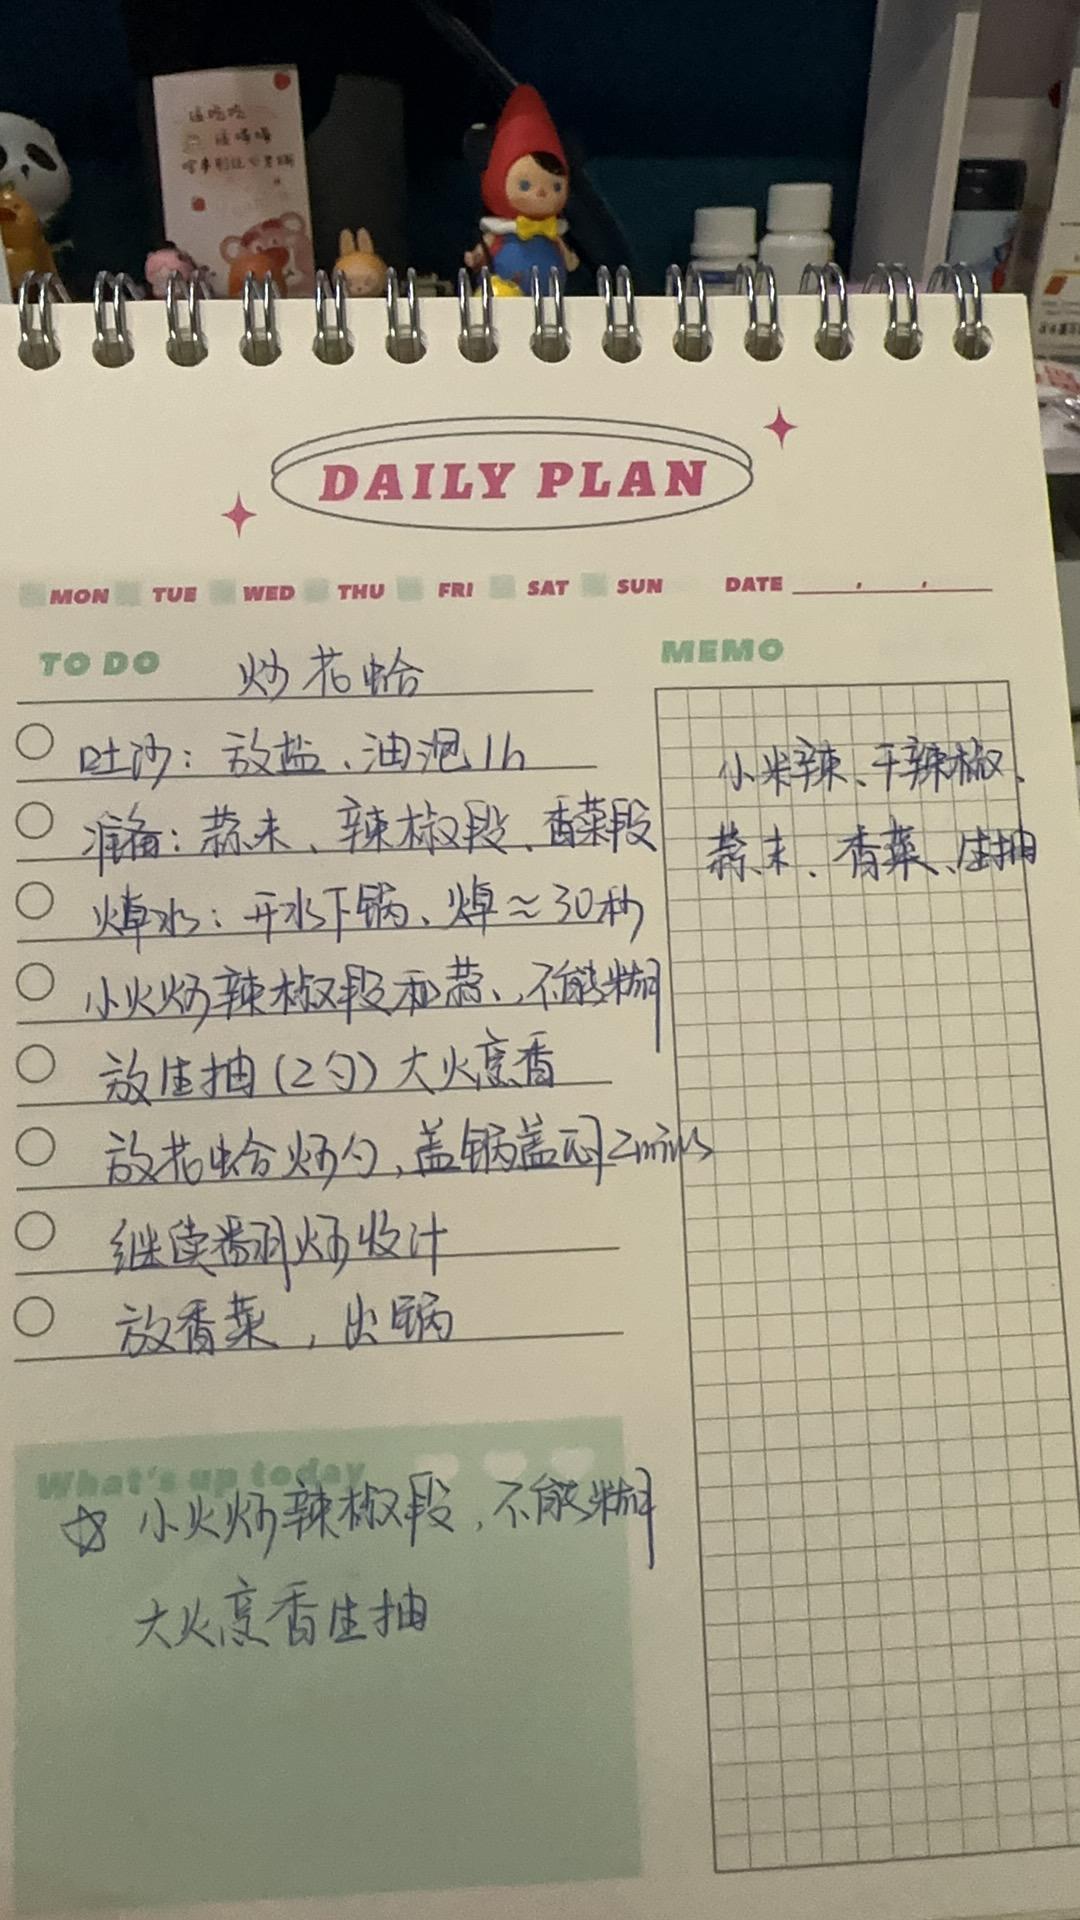 DAILY PLAN
MON TUE WED THU FRI SAT SUN DATE
TO DO 炒花蛤
吐沙：放盐、油泡1h
准备：蒜末、辣椒段、香菜段
焯水：开水下锅、焯≈30秒
小火炒辣椒段和蒜、不能糊
放生抽(2勺)大火烹香
放花蛤炒匀,盖锅盖闷2mins
继续翻炒收汁
放香菜,出锅
MEMO
小米辣、干辣椒、
蒜末、香菜、生抽
What's up today
☆ 小火炒辣椒段,不能糊
大火烹香生抽